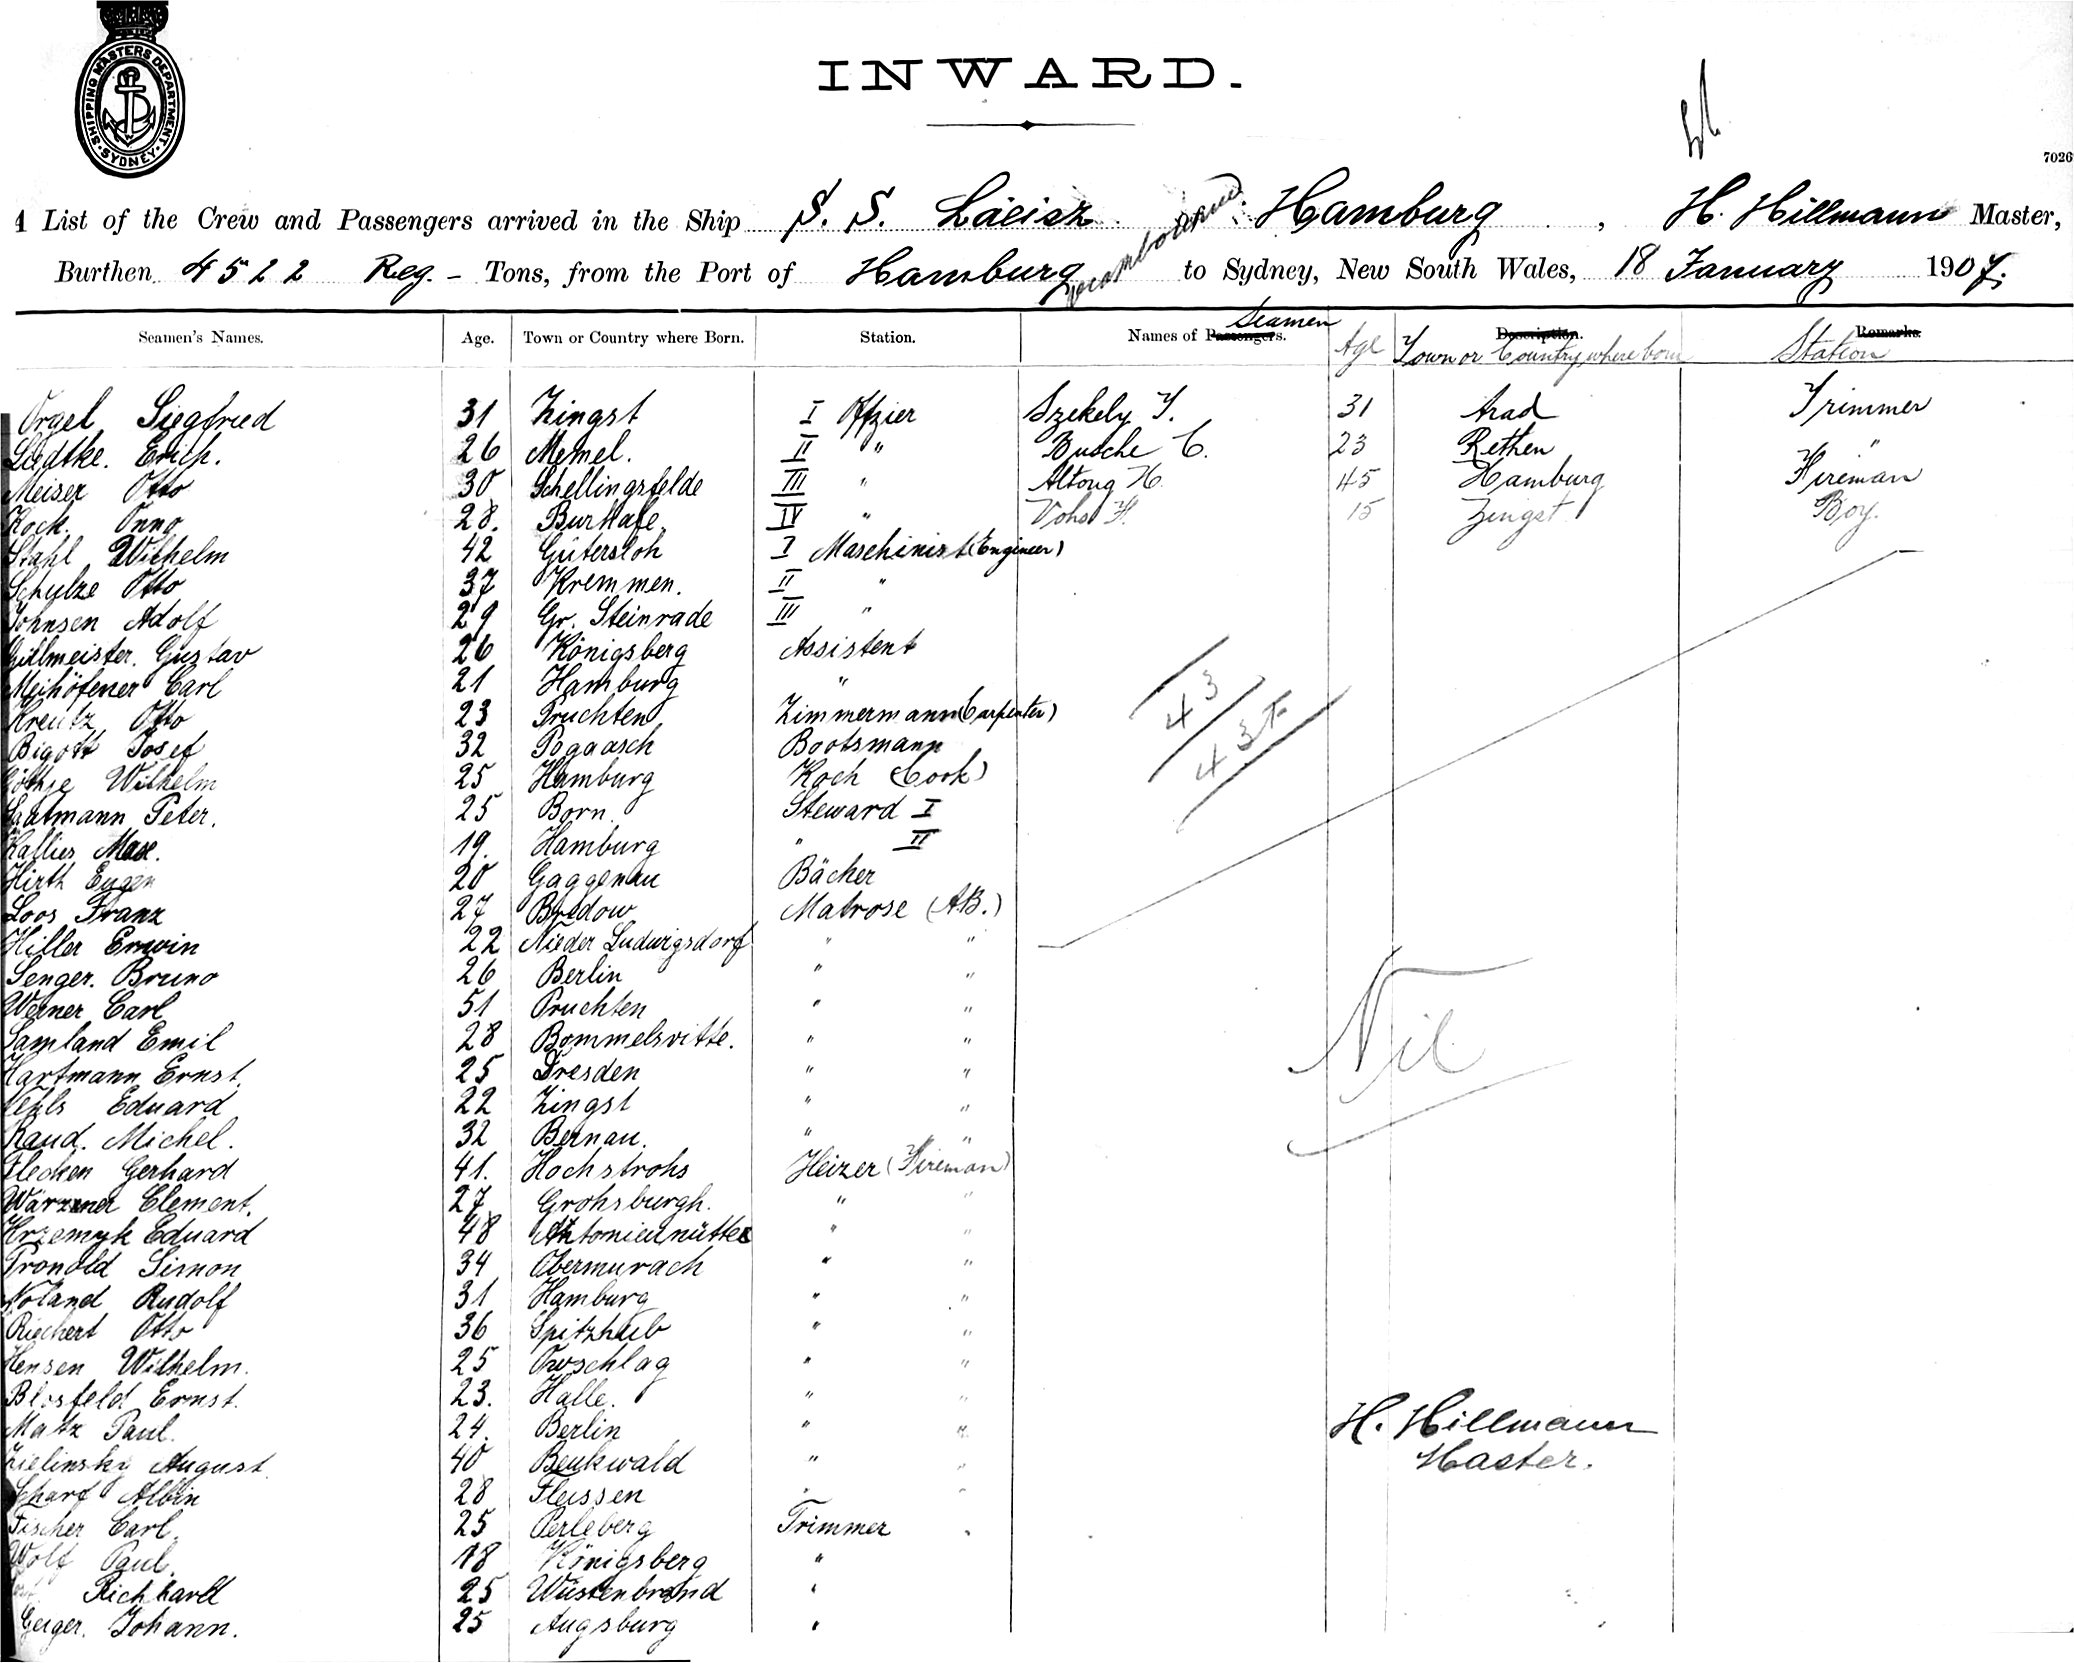 SHIPPING MASTERS DEPARTMENT. SYDNEY.
INWARD.
7026
A List of the Crew and Passengers arrived in the Ship S. S. Läeisz Hamburg, H. Hillmann Master,
Burthen 4522 Reg. - Tons, from the Port of Hamburg to Sydney, New South Wales, 18 January 1907.
Seamen's Names. Age. Town or Country where Born. Station. Names of Passengers. Seamen Age Description. Town or Country where born Remarks. Station
Orgel Siegfried 31 Zingst I Offizier Szekely J. 31 Arad Trimmer
Liedtke. Erich. 26 Memel. II " Busche C. 23 Rethen "
Meiser Otto 30 Schellingsfelde III " Altong H. 45 Hamburg Fireman
Kock. Onno 28. Burhafe. IV " Vohs F. 15 Zingst Boy.
Stahl Wilhelm 42 Gütersloh I Maschinist (Engineer)
Schulze Otto 37 Kremmen. II "
Johnsen Adolf 29 Gr. Steinrade III "
Gillmeister. Gustav 26 Königsberg Assistent
Meihöfener Carl 21 Hamburg "
Kreutz Otto 23 Pruchten Zimmermann (Carpenter)
43
Bigott Josef 32 Pogaasch Bootsmann
43
Göthje Wilhelm 25 Hamburg Koch (Cook)
Saatmann Peter. 25 Born. Steward I
Kallies Max. 19. Hamburg " II
Hirth Eugen 20 Gaggenau Bäcker
Loos Franz 27 Bredow Matrose (AB.)
Hiller Erwin 22 Nieder Ludwigsdorf " "
Senger. Bruno 26 Berlin " "
Werner Carl 51 Pruchten " "
Nil
Samland Emil 28 Bommelsvitte. " "
Hartmann Ernst. 25 Dresden " "
Eduard 22 Zingst " "
Raud. Michel. 32 Bernau. " "
Flecken Gerhard 41. Hochstrohs Heizer (Fireman)
Warzner Clement. 27 Grohsburgh. " "
Krzemyk Eduard 48 " "
Pronold Simon 34 Obermurach " "
Noland Rudolf 31 Hamburg " "
Riechert Otto 36 Spitzhub " "
Hensen Wilhelm. 25 Owschlag " "
Blosfeld Ernst. 23. Halle. " "
Matz Paul. 24. Berlin " "
H. Hillmann
Master.
Zielinsky August 40 Beukwald " "
Scharf Albin 28 Fleissen " "
Fischer Carl. 25 Perleberg Trimmer "
Wolf Paul. 18 Königsberg "
Richhardt 25 Wüstenbrand "
Geiger. Johann. 25 Augsburg "